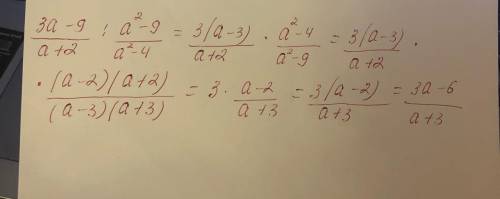 (3a-9)/(a+2) : (a²-9)/(a²-4) = 3(a-3)/(a+2) · (a²-4)/(a²-9) = 3(a-3)/(a+2) ·
· (a-2)(a+2)/((a-3)(a+3)) = 3 · (a-2)/(a+3) = 3(a-2)/(a+3) = (3a-6)/(a+3)